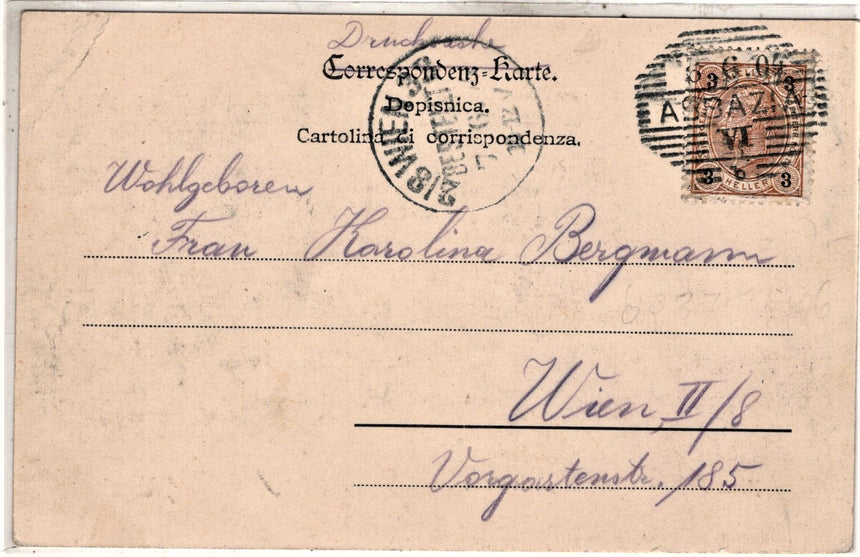 Drucksache
Correspondenz-Karte.
Dopisnica.
Cartolina di corrispondenza.
2/8 WIEN 2/8
BESTELLT
3 3
ABBAZIA
VI
3 HELLER 3
Wohlgeboren
Frau Karolina Bergmann
Wien II/8
Vorgartenstr. 185